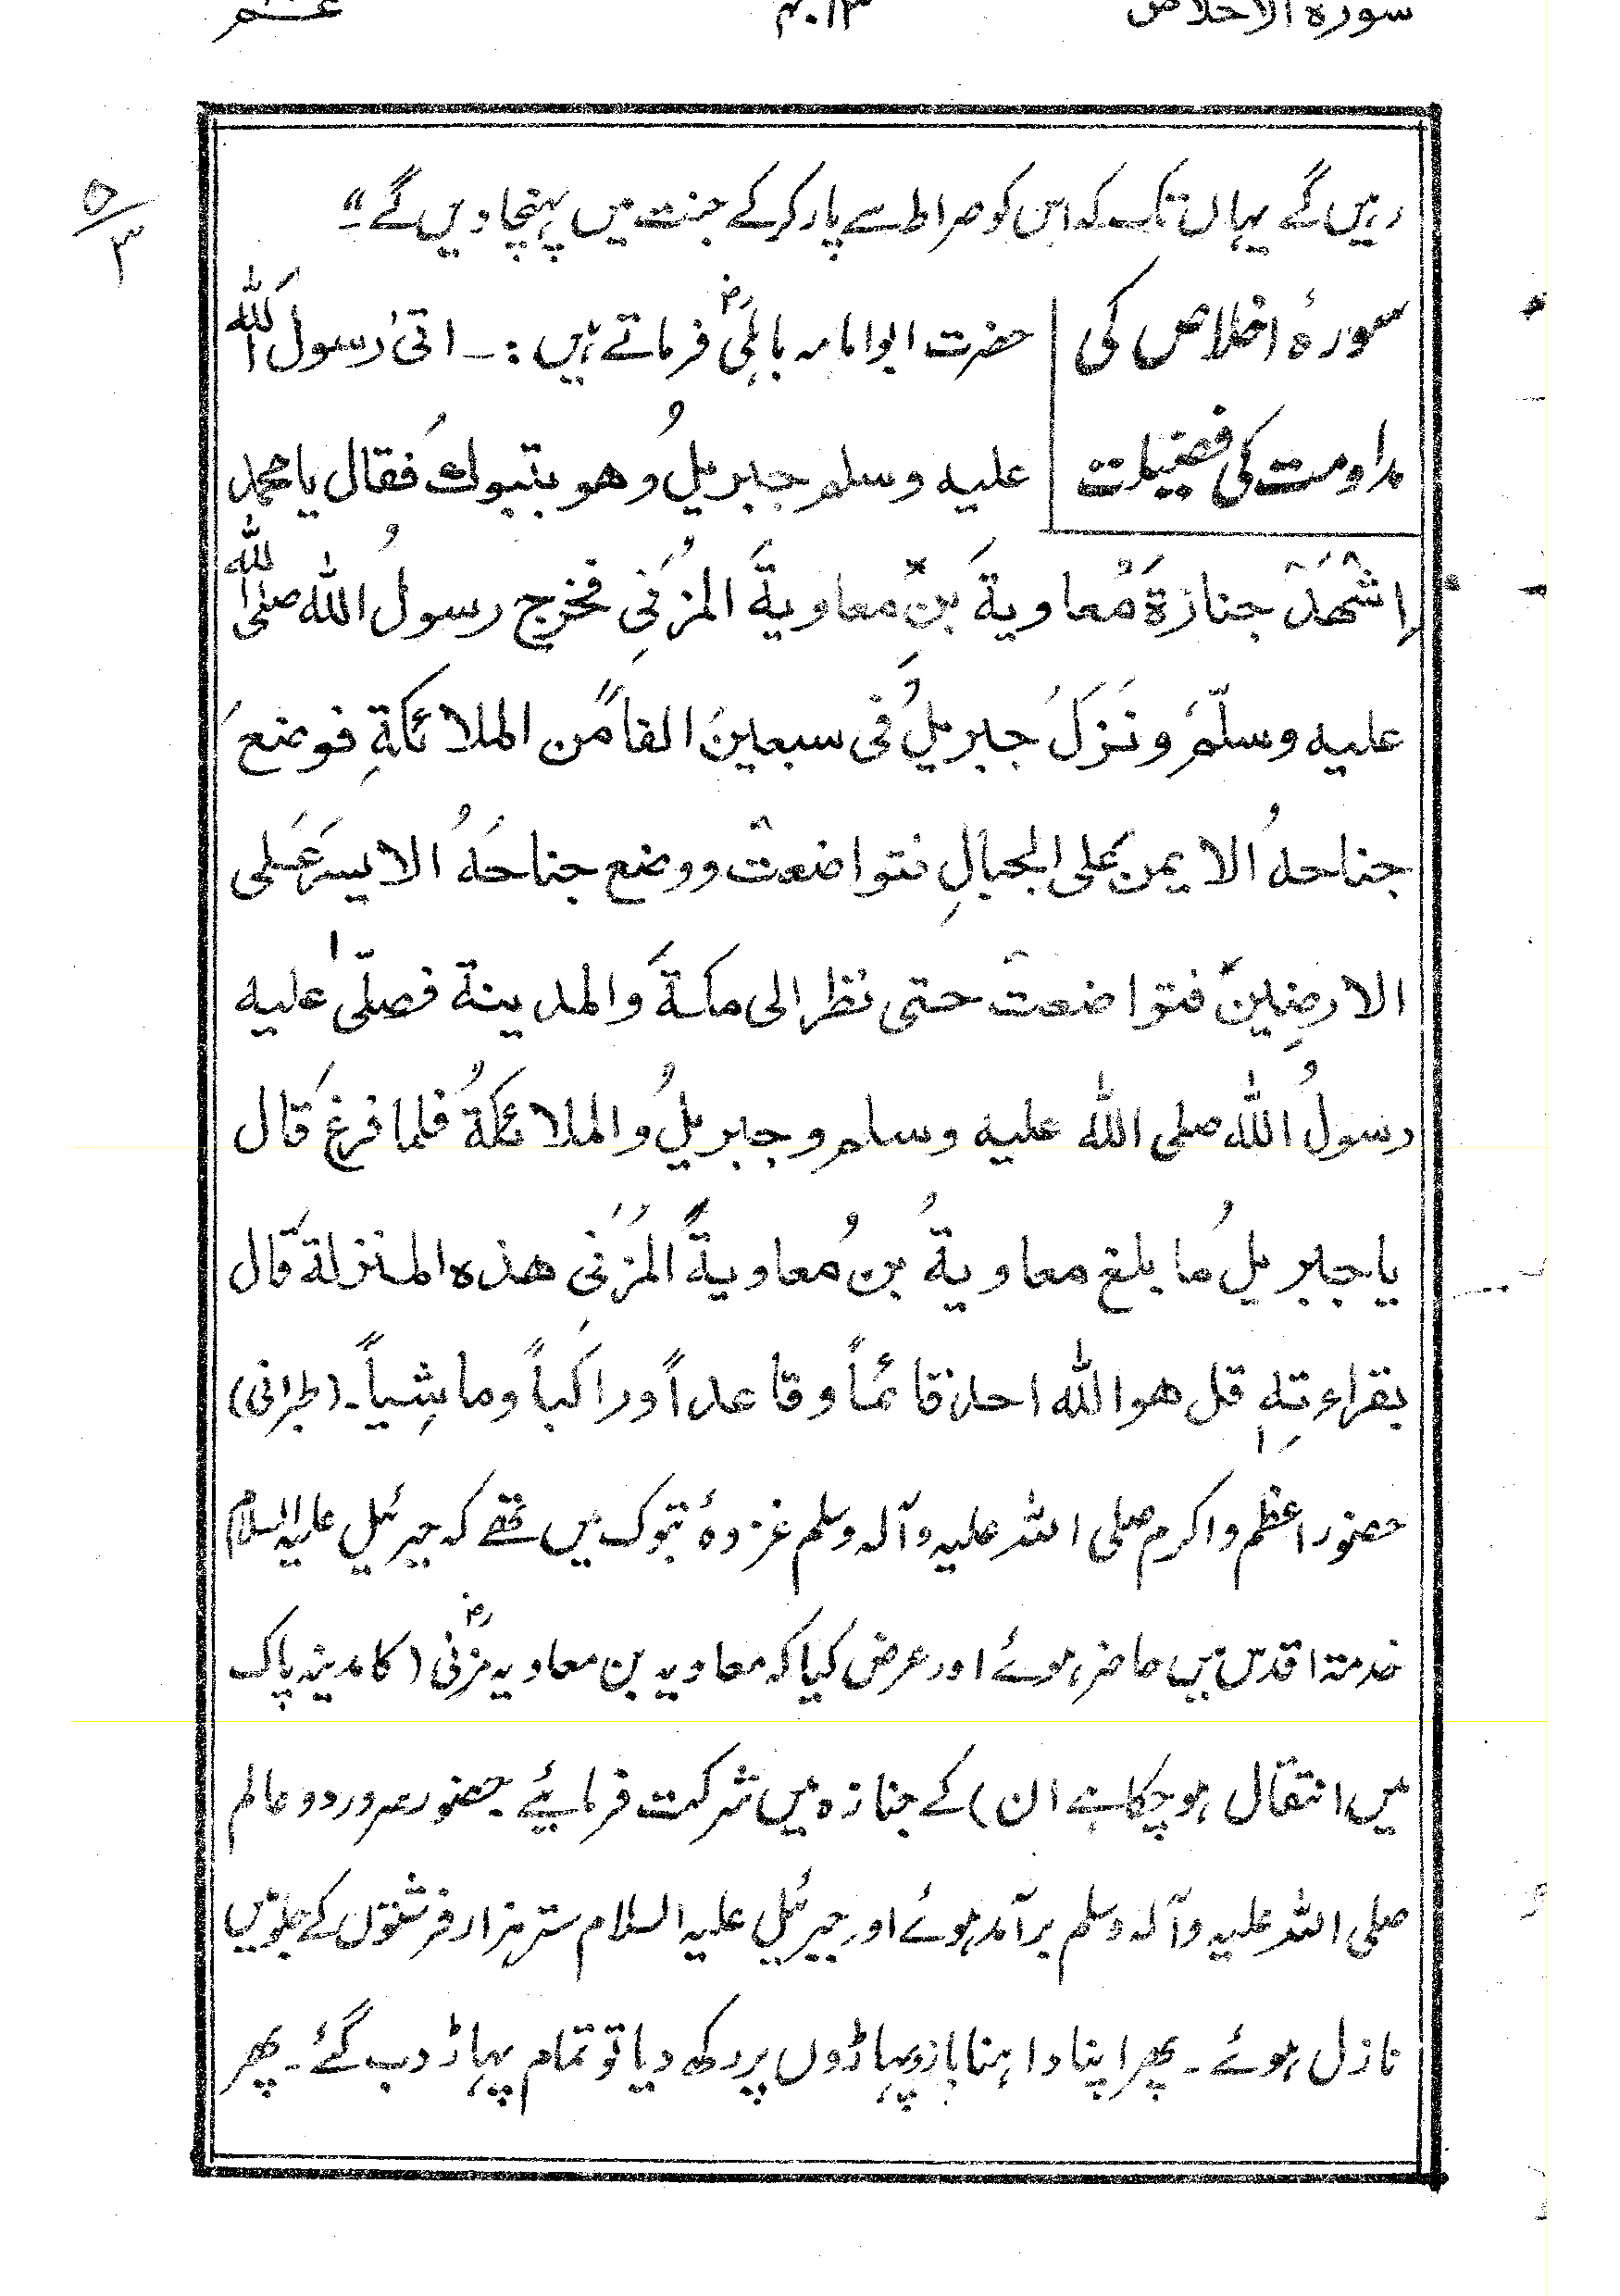 سورہ الاخلاص ۴۰۱۳ عــم
۵/۳
رہیں گے یہاں تک کہ اس کو صراط سے پار کرکے جنت میں پہنچا دیں گے۔"
سورۂ اخلاص کی حضرت ابوامامہ باہلیؓ فرماتے ہیں :۔ اتیٰ رسولَ اللہ
مداومت کی فضیلت علیہ وسلم جبریلُ وھو بتبوك فقال یا محمد
اِشْھَدْ جنازۃَ مُعاویۃَ بنِ معاویۃَ المُزنِی فخرج رسولُ اللہ صلی اللہ
علیہ وسلّمَ ونَزَلَ جبریلُ فی سبعینَ الفاً من الملائكةِ فوضعَ
جناحہُ الایمنَ علی الجبالِ فتواضعتْ ووضع جناحَہُ الایسرَ عَلی
الارضِینَ فتواضعتْ حتی نظر الی مكةَ والمدینة فصلّیٰ علیہ
رسولُ اللہ صلی اللہ علیہ وسلم وجبریلُ والملائكةُ فلما فرغَ قال
یا جبریلُ ما بلغ معاویۃُ بنُ مُعاویۃَ المُزَنِی ھذہ المنزلۃَ قال
بقراءتِہٖ قل ھو اللہ احد قائماً وقاعداً وراكباً وماشِیاً۔ (طبرانی)
حضور اعظم واکرم صلی اللہ علیہ وآلہ وسلم غزوۂ تبوک میں تھے کہ جبرئیل علیہ السلام
خدمۃ اقدس میں حاضر ہوئے اور عرض کیا کہ معاویہ بن معاویہ مزنیؓ (کا مدینہ پاک
میں انتقال ہوچکا ہے ان) کے جنازہ میں شرکت فرمائیے۔ حضور سرور دو عالم
صلی اللہ علیہ وآلہ وسلم برآمد ہوئے اور جبرئیل علیہ السلام ستر ہزار فرشتوں کے جلو میں
نازل ہوئے۔ پھر اپنا داہنا بازو پہاڑوں پر رکھ دیا تو تمام پہاڑ دب گئے۔ پھر